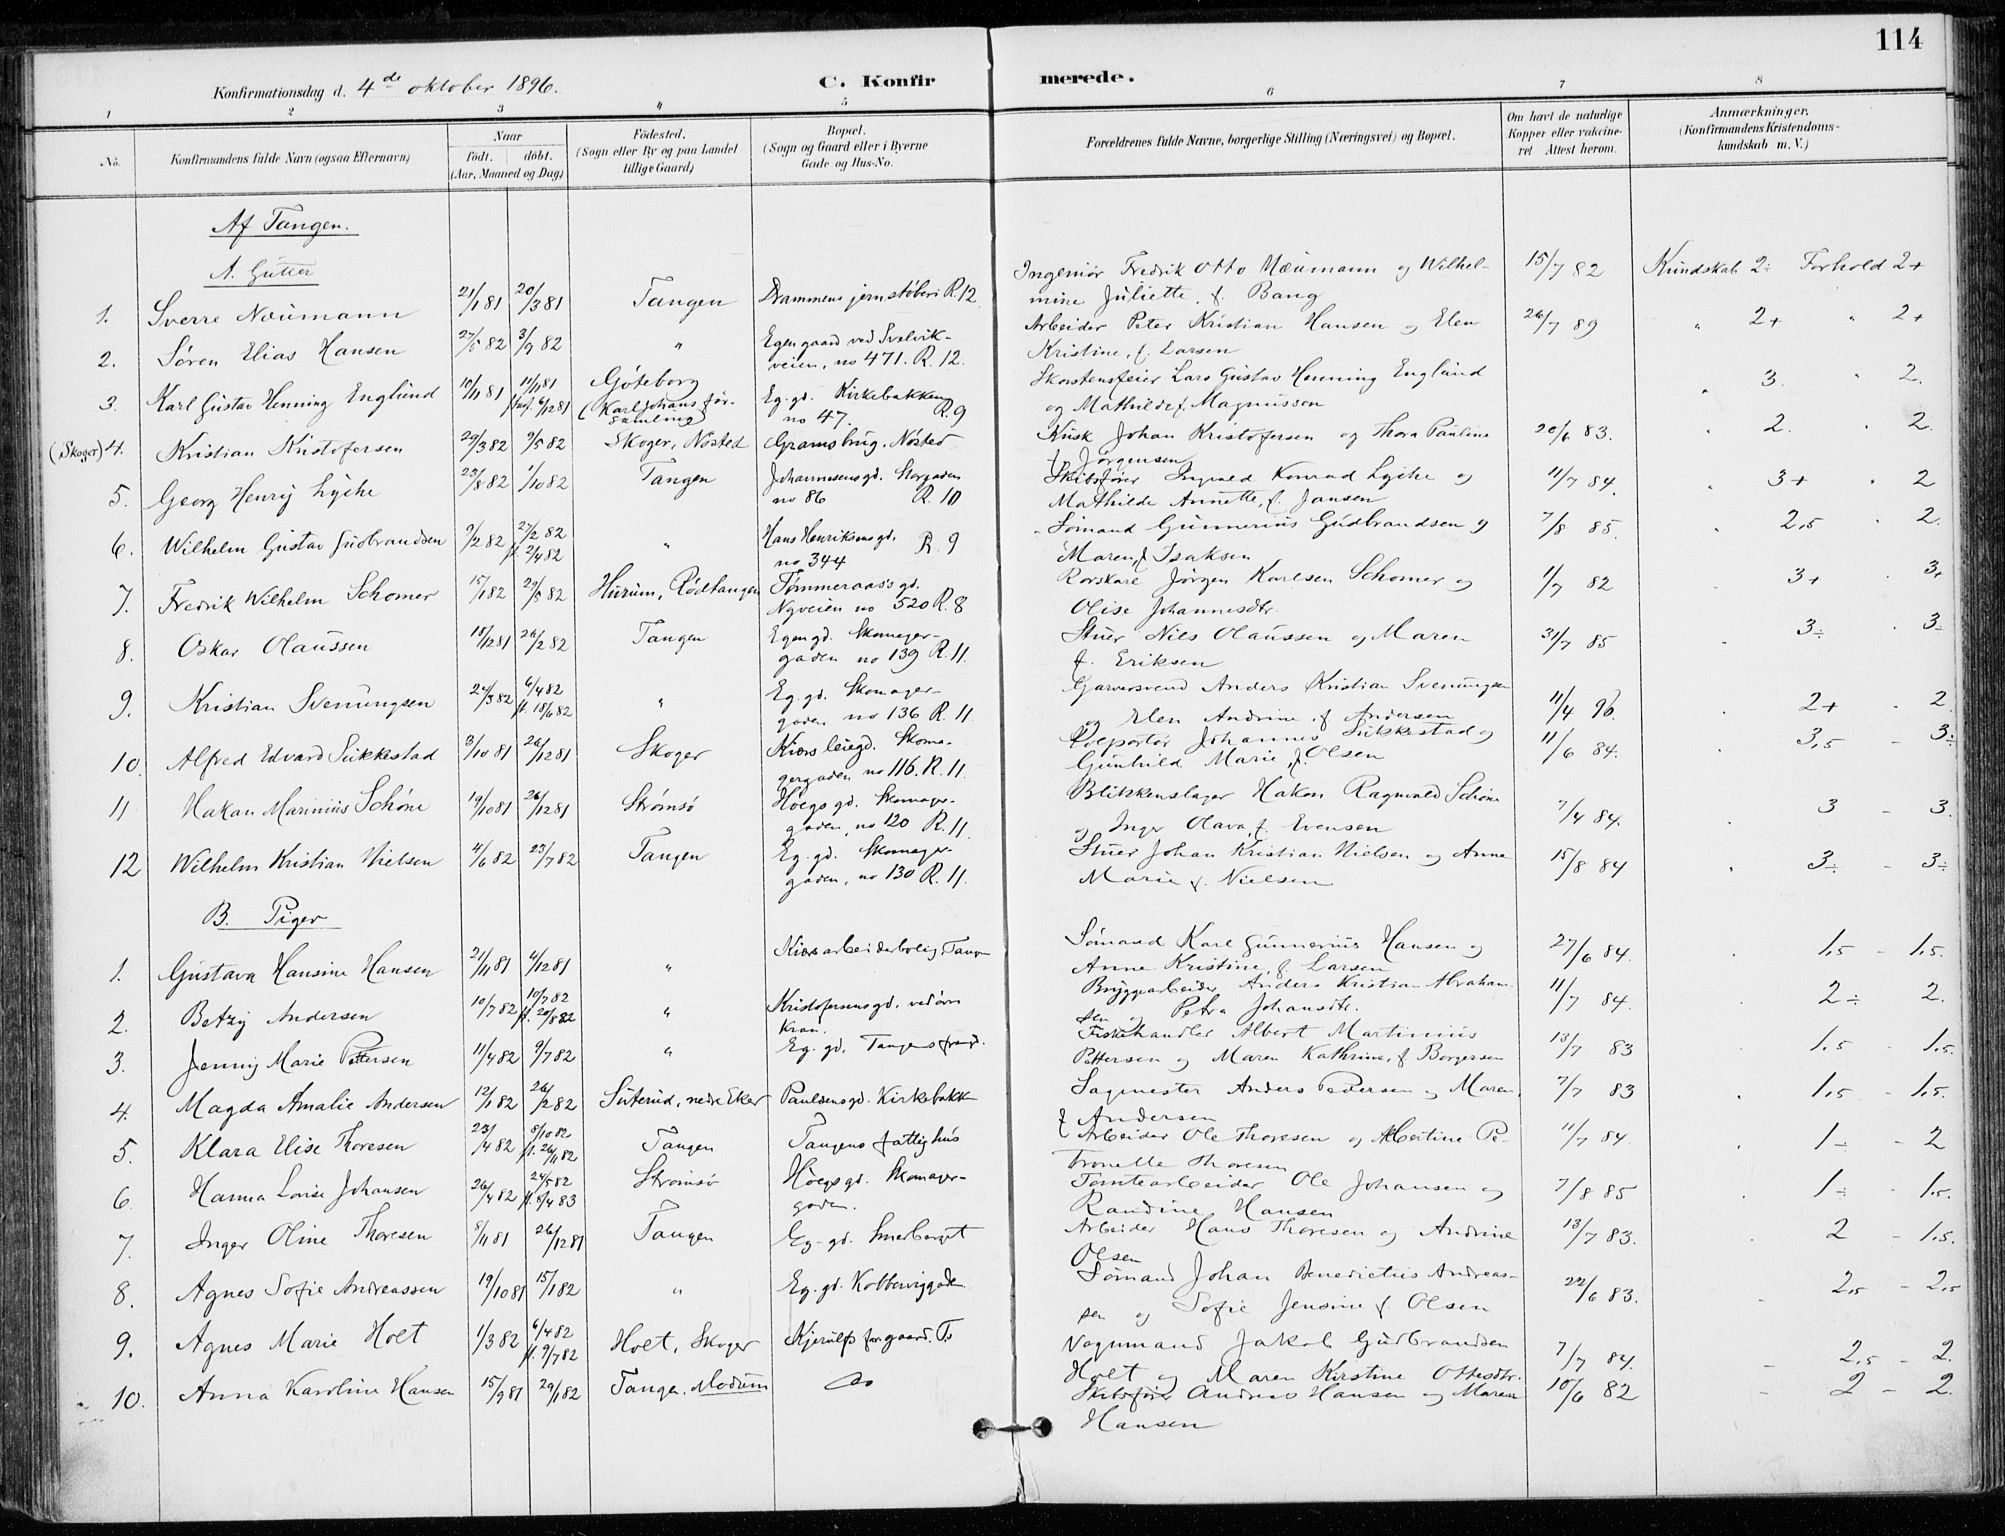 114
Konfirmationsdag d. 4de oktober 1896.
C. Konfirmerede.
1 2 3 4 5 6 7 8
No.
Konfirmandens fulde Navn (ogsaa Efternavn)
Naar født. døbt. (Aar, Maaned og Dag)
Fødested. (Sogn eller By og paa Landet tillige Gaard)
Bopæl. (Sogn og Gaard eller i Byerne Gade og Hus-No.
Forældrenes fulde Navne, borgerlige Stilling (Næringsvei) og Bopæl.
Om havt de naturlige Kopper eller vaccineret Attest herom.
Anmærkninger. (Konfirmandens Kristendomskundskab m. V.)
Af Tangen.
A. Gutter
1. Sverre Neumann 21/1 81 20/3 81 Tangen Drammens jernstøberi R.12 Ingeniør Fredrik Otto Neumann og Wilhelmine Juliette, f. Bang 15/7 82 Kundskab 2÷ Forhold 2+
2. Søren Elias Hansen 27/5 82 3/9 82 " Egen gaard ved Svelvikveien, no 471. R. 12. Arbeider Peter Kristian Hansen og Elen Kristine, f. Larsen 26/7 89 " 2+ " 2+
3. Karl Gustav Henning Englund 10/11 81 11/11 81 6/12 81 Göteborg (Karl Johans församling) Eg. gd. Kirkebakken no 47. R.9 Skorstensfeier Lars Gustav Henning Englund og Mathilde f. Magnusson " 3. " 2.
(Skoger) 4. Kristian Kristofersen 29/3 82 9/5 82 Skoger, Nøsted Gramsbrug, Nøsted Kusk Johan Kristofersen og Thora Pauline f. Jørgensen 20/6 83. " 2. " 2.
5. Georg Henry Lyche 23/8 82 1/10 82 Tangen Johannesens gd. Storgaden no 86 R. 10 Skibsfører Ingvald Konrad Lyche og Mathilde Annette, f. Jansen 11/7 84. " 3+ " 2
6. Wilhelm Gustav Gudbrandsen 9/2 82 27/2 82 f. 2/4 82 " Hans Henriksens gd. no 344 R. 9 Sømand Gunnerius Gudbrandsen og Maren, f. Isaksen 7/8 85. " 2,5 " 2.
7. Fredrik Wilhelm Schomer 15/1 82 29/5 82 Hurum, Rødtangen Tømmeraas's gd. Nyveien no 520 R. 8 Rorskarl Jørgen Karlsen Schomer og Olise Johannesdtr. 11/7 82 3+ " 3+
8. Oskar Olaussen 15/12 81 26/2 82 Tangen Egen gd. Skomagergaden no 139 R. 11. Stuer Nils Olaussen og Maren f. Eriksen 31/7 85 " 3÷ " 3÷
9. Kristian Svenungsen 24/3 82 6/4 82 f. 18/6 82 " Eg. gd. Skomagergaden no 136 R. 11. Garversvend Anders Kristian Svenungsen og Elen Andrine, f. Andersen 11/4 96. " 2+ " 2.
10. Alfred Edvard Sukkestad 3/10 81 26/12 81 Skoger Kiørs leiegd. Skomagergaden no 116. R. 11. Kolportør Johannes Sukkestad og Gunhild Marie, f. Olsen 11/6 84. " 3,5 - 3÷
11 Hakon Marinius Schöne 19/10 81 26/12 81 Strømsø Høegs gd. Skomagergaden, no 120 R. 11. Blikkenslager Hakon Ragnvald Schöne og Inger Olava, f. Evensen 7/4 84. 3 - 3.
12 Wilhelm Kristian Nielsen 4/6 82 23/7 82 Tangen Eg. gd. Skomagergaden, no 130 R. 11. Stuer Johan Kristian Nielsen og Anne Marie f. Nielsen 15/8 84 " 3÷ - 3÷
B. Piger
1. Gustava Hansine Hansen 21/11 81 4/12 81 " Kiørs arbeiderbolig, Tang Sømand Karl Gunnerius Hansen og Anne Kristine, f. Larsen 27/6 84. 1,5 - 1,5.
2. Betzy Andersen 10/7 82 10/7 82 f. 20/8 82 " Kristofersens gd. ved øvre Kran. Bryggearbeider Anders Kristian Abrahamsen og Petra Johansdtr. 11/7 84. " 2÷ 2.
3. Jenny Marie Pettersen 11/4 82 9/7 82 " Eg. gd. Tangens Fiskehandler Albert Martinius Pettersen og Maren Kathrine, f. Borgersen 13/7 83 1,5 - 1,5.
4. Magda Amalie Andersen 12/1 82 26/2 82 Suterud, nedre Eker Paulsens gd. Kirkebakk Sagmester Anders Pedersen og Maren f. Andersen 7/7 83 " 1,5 - 1,5.
5. Klara Elise Thoresen 23/4 82 8/10 82 f. 26/11 82 Tangen Tangens fattighus Arbeider Ole Thoresen og Albertine Petronelle Thoresen 11/7 84 " 1÷ - 2
6 Hanna Lovise Johansen 26/4 82 24/5 82 f. 8/4 83 Strømsø Høegs gd. Skomagergaden. Tomtearbeider Ole Johansen og Randine Hansen 7/8 85 " 1÷ - 1,5.
7. Inger Oline Thoresen 8/11 81 26/12 81 Tangen Eg. gd. Smerberget Arbeider Hans Thoresen og Andrine Olsen 13/7 83. " 2 - 1,5.
8. Agnes Sofie Andreassen 19/10 81 15/1 82 " Eg. gd. Kobberviggade Sømand Johan Benedictus Andreassen og Sofie Jensine f. Olsen 22/6 83. - 2,5 - 2,5
9. Agnes Marie Holt 1/3 82 6/4 82 f. 9/7 82 Holt, Skoger Kjerulfs forgaard. Ts Vognmand Jakob Gudbrandsen Holt og Maren Kirstine Ottesdtr. 7/7 84. - 2,5 - 2.
10. Anna Karoline Hansen 15/9 81 29/1 82 Tangen, Modum do Skibsfører Andreas Hansen og Maren Hansen 10/6 82 - 2 - 2.